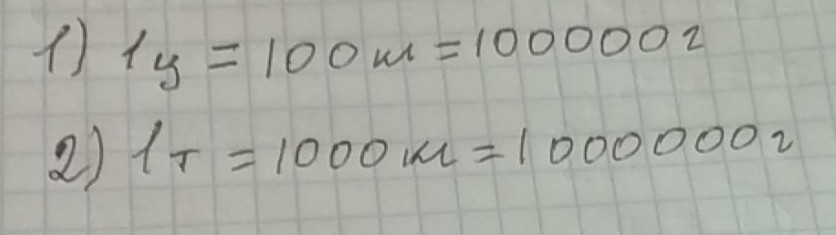 1) 1ц = 100 кг = 100000 г
2) 1т = 1000 кг = 1000000 г